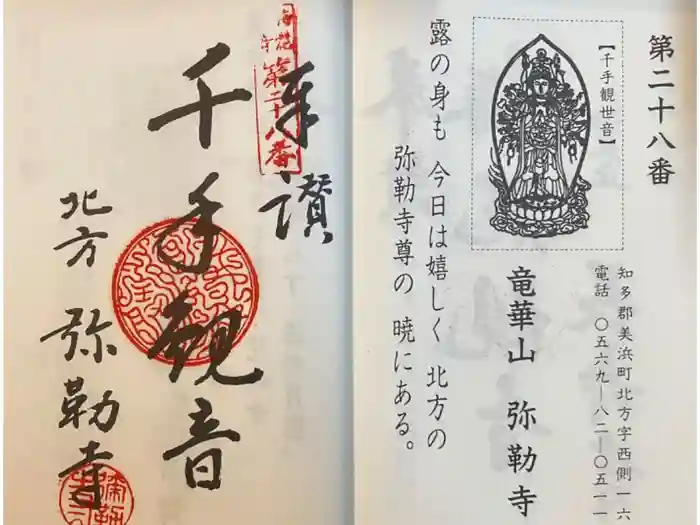 第二十八番
【千手観世音】
知多郡美浜町北方字西側一六
電話 〇五六九―八二―〇五一一
竜華山 弥勒寺
露の身も 今日は嬉しく 北方の
弥勒寺尊の 暁にある。
奉讃
第二十八番
千手観音
北方 弥勒寺